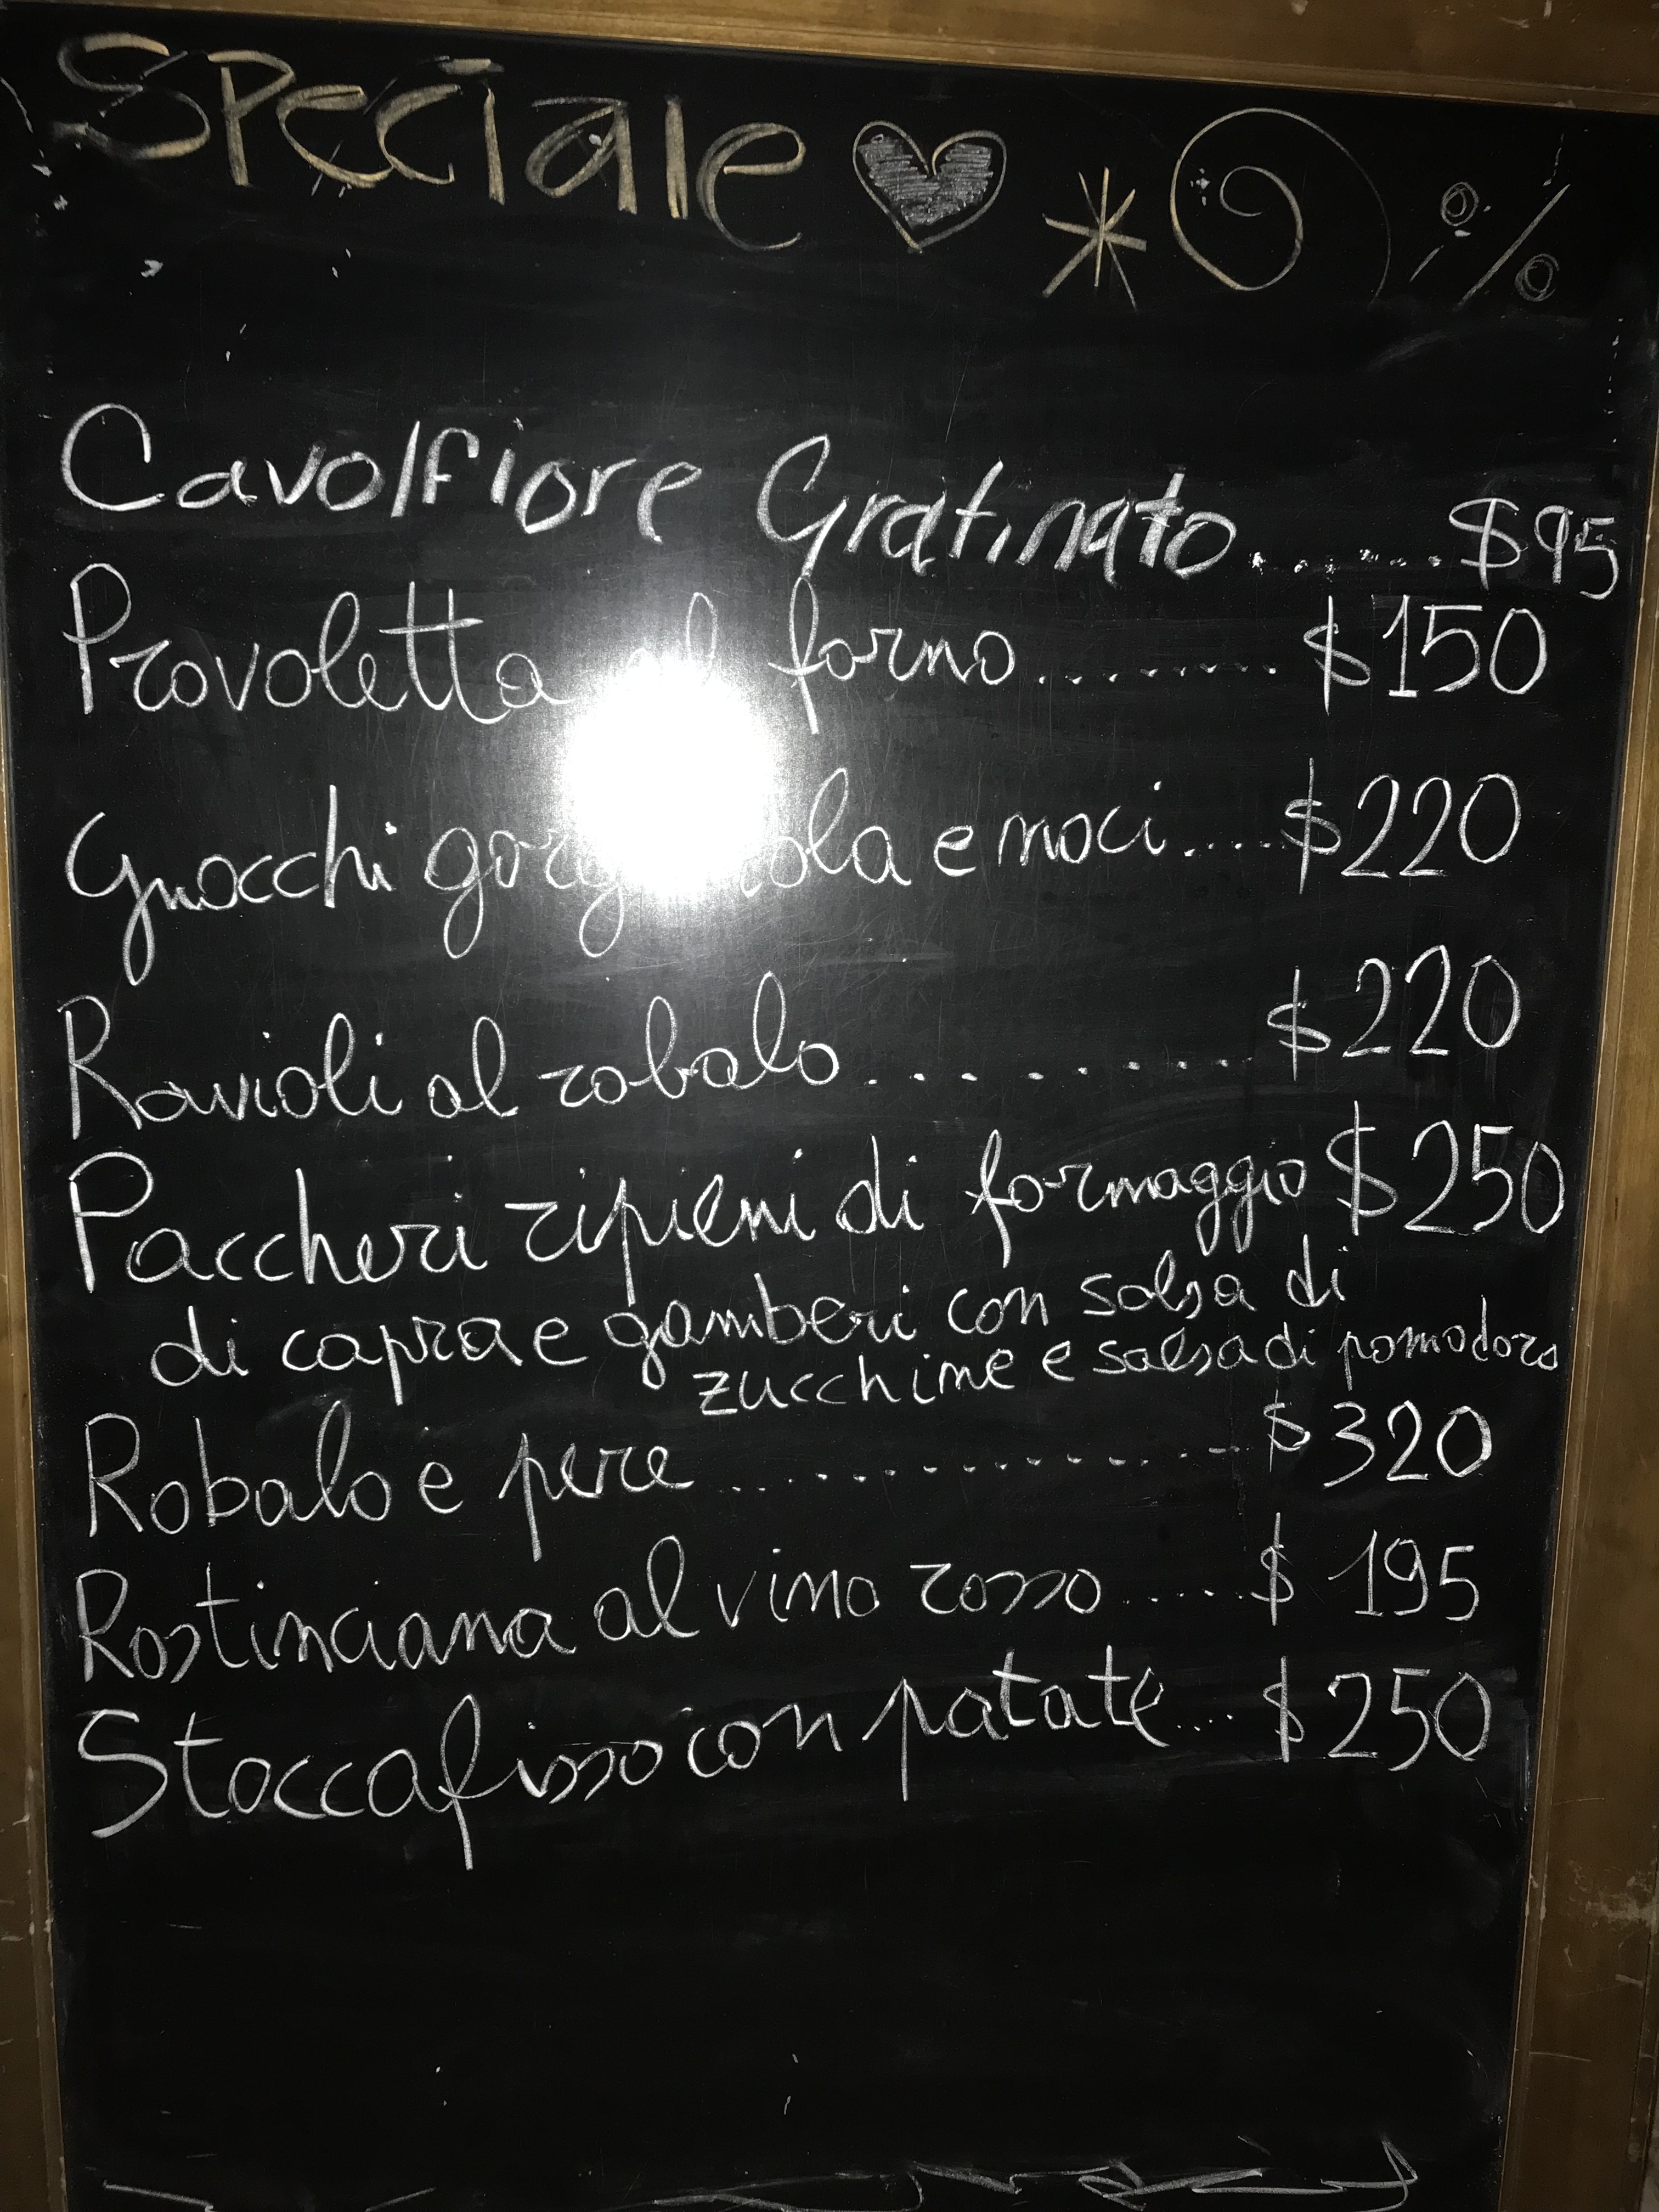 Speciale
Cavolfiore Gratinato........$95
Provoletta al forno.........$150
Gnocchi e noci.....$220
Ravioli al robalo..........$220
Paccheri ripieni di formaggio $250
di capra e gamberi con salsa di
zucchine e salsa di pomodoro
Robalo e pere...............$320
Rostinciana al vino rosso.....$ 195
Stoccafisso con patate....$250